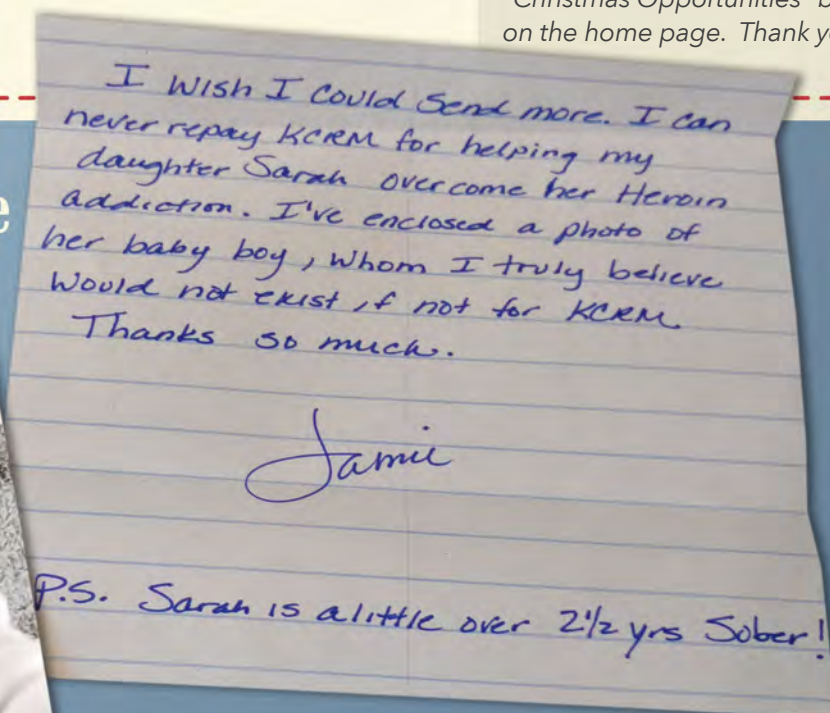 Christmas Opportunities"
on the home page. Thank
I wish I could send more. I can
never repay KCRM for helping my
daughter Sarah overcome her Heroin
addiction. I've enclosed a photo of
her baby boy, whom I truly believe
would not exist, if not for KCRM.
Thanks so much.
Jamie
P.S. Sarah is a little over 2½ yrs Sober!